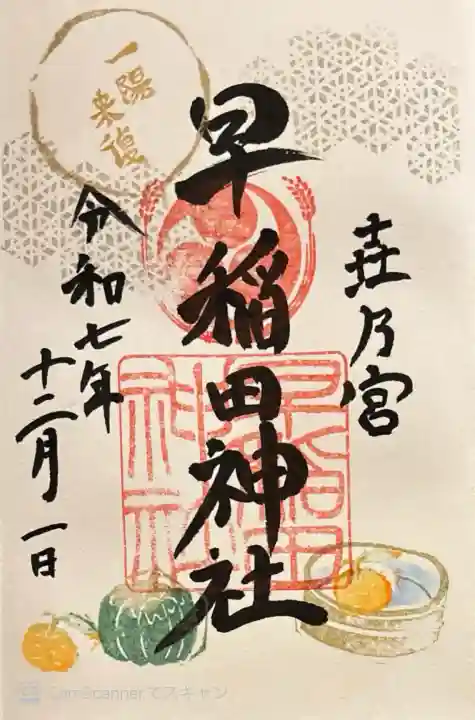 壵乃宮
早稲田神社
一陽
来復
令和七年
十二月一日
早稲田
神社
CamScannerでスキャン